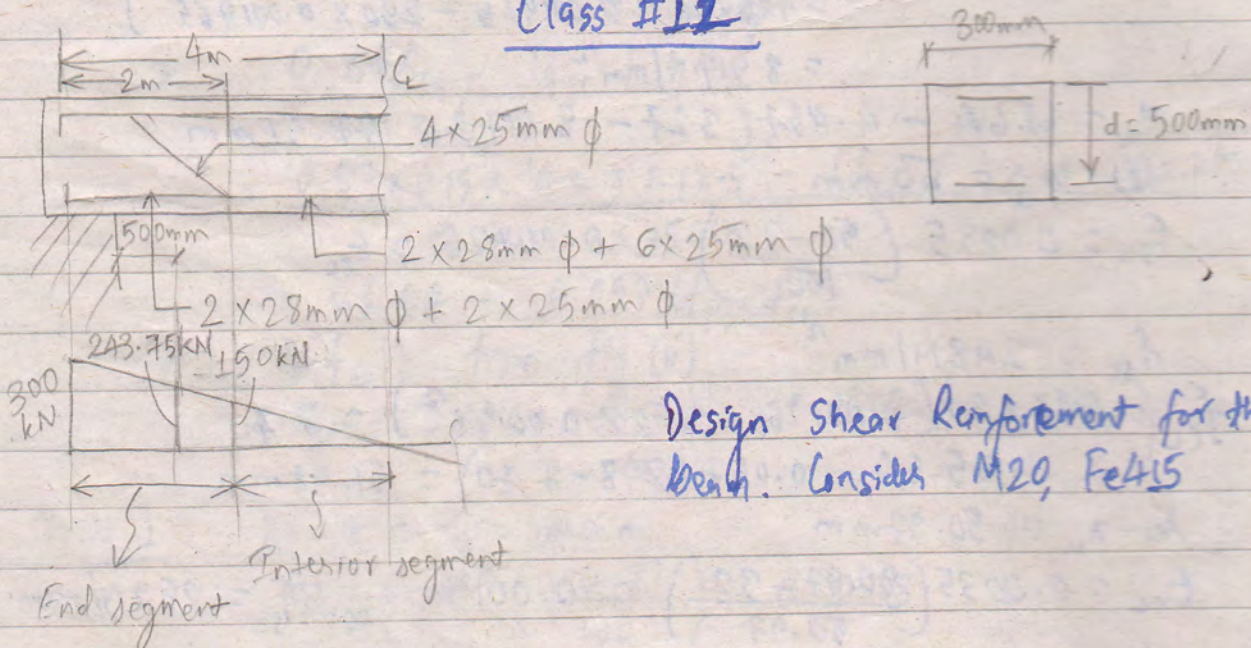 Class #11
4m
2m
C̲L
300mm
4 × 25mm ϕ
d = 500mm
500mm
2 × 28mm ϕ + 6 × 25mm ϕ
2 × 28mm ϕ + 2 × 25mm ϕ
243.75kN
150kN
300 kN
Design Shear Reinforcement for th
beam. Consider M20, Fe415
Interior segment
End segment